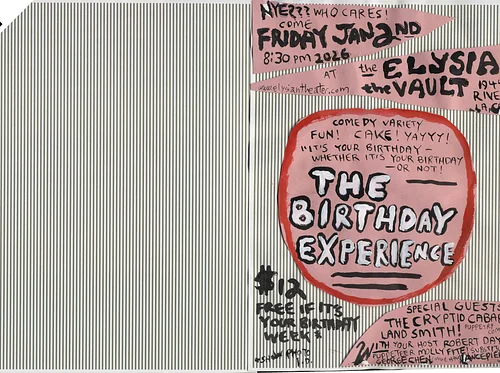 NYE??? WHO CARES!
COME
FRIDAY JAN 2ND
8:30 PM 2026
AT
the ELYSIA
the VAULT
RIVE
COMEDY VARIETY
FUN! CAKE! YAYYY!
"IT'S YOUR BIRTHDAY -
WHETHER IT'S YOUR BIRTHDAY
- OR NOT!
THE
BIRTHDAY
EXPERIENCE
$12
FREE IF IT'S
YOUR BIRTHDAY
WEEK*
*SHOW PHOTO
I.D.
SPECIAL GUESTS
THE CRYPTID CABAR
LAND SMITH!
WITH YOUR HOST ROBERT DAY
PUPPETEER MOLLY FITE!
GEORGE CHEN